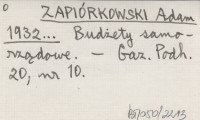 ZAPIÓRKOWSKI Adam
1932... Budżety samo-
rządowe. — Gaz. Podh.
20, nr 10.